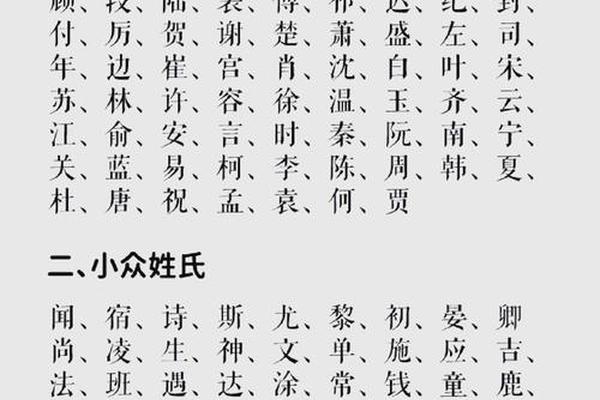 顾、段、陆、裴、傅、祁、迟、纪、封、
付、厉、贺、谢、楚、萧、盛、左、司、
年、边、崔、宫、肖、沈、白、叶、宋、
苏、林、许、容、徐、温、玉、齐、云、
江、俞、安、言、时、秦、阮、南、宁、
关、蓝、易、柯、李、陈、周、韩、夏、
杜、唐、祝、孟、袁、何、贾
二、小众姓氏
闻、宿、诗、斯、尤、黎、初、晏、卿
尚、凌、生、神、文、单、施、应、吉、
法、班、遇、达、涂、常、钱、童、鹿、